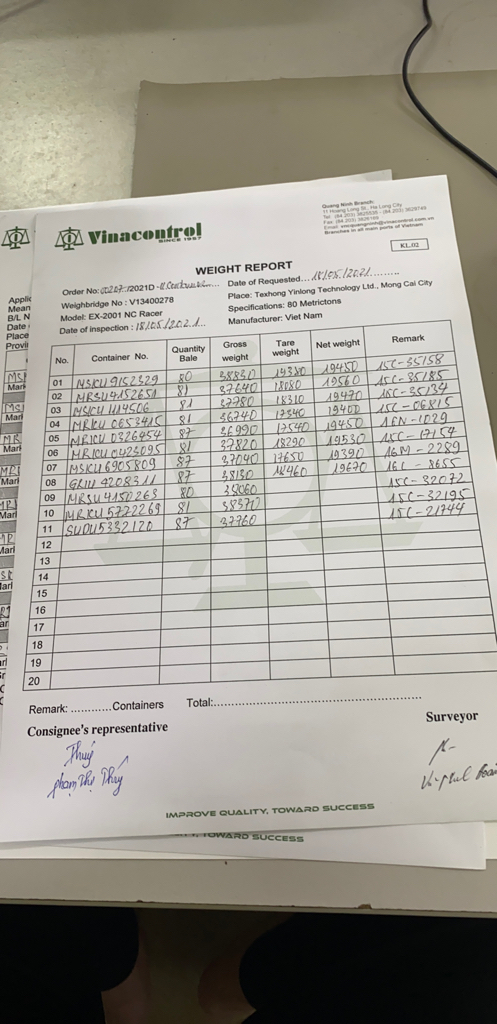 Vinacontrol
SINCE 1957
Quang Ninh Branch:
11 Hoang Long St., Ha Long City
Branches in all main ports of Vietnam
KL.02
WEIGHT REPORT
Order No: /2021D - Date of Requested... 18/05/2021
Weighbridge No : V13400278 Place: Texhong Yinlong Technology Ltd., Mong Cai City
Model: EX-2001 NC Racer Specifications: 80 Metrictons
Date of inspection : 18/05/2021 Manufacturer: Viet Nam
No. Container No. Quantity Bale Gross weight Tare weight Net weight Remark
01 MSKU 9152329 80 38830 19380 19450 15C-35158
02 MRSU 4152651 81 37640 18080 19560 15C-35185
03 81 37780 18310 19470 15C-35134
04 MRKU 0653415 81 36740 17340 19400 15C-06815
05 MRKU 0326454 87 36990 17540 19450 1029
06 MRKU 0423095 81 37820 18290 19530 15C-17154
07 MSKU 6905809 87 37040 17650 19390 16M-2289
08 4208311 87 38130 18460 19670 16L-8655
09 MRSU 4150263 80 15C-32072
10 MRKU 5722269 81 38370 15C-32195
11 SUDU 5332120 87 37760 15C-21744
12
13
14
15
16
17
18
19
20
Remark: ...........Containers Total:
Consignee's representative Surveyor
Thuý
Phạm Thị Thuý
IMPROVE QUALITY, TOWARD SUCCESS
TOWARD SUCCESS